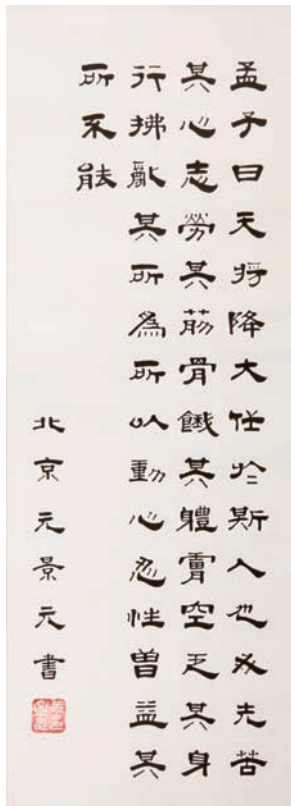 孟子曰天將降大任於斯人也必先苦
其心志勞其筋骨餓其體膚空乏其身
行拂亂其所爲所以動心忍性曾益其
所不能
北京元景元書